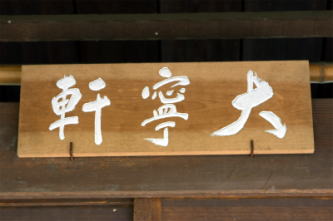 大寧軒